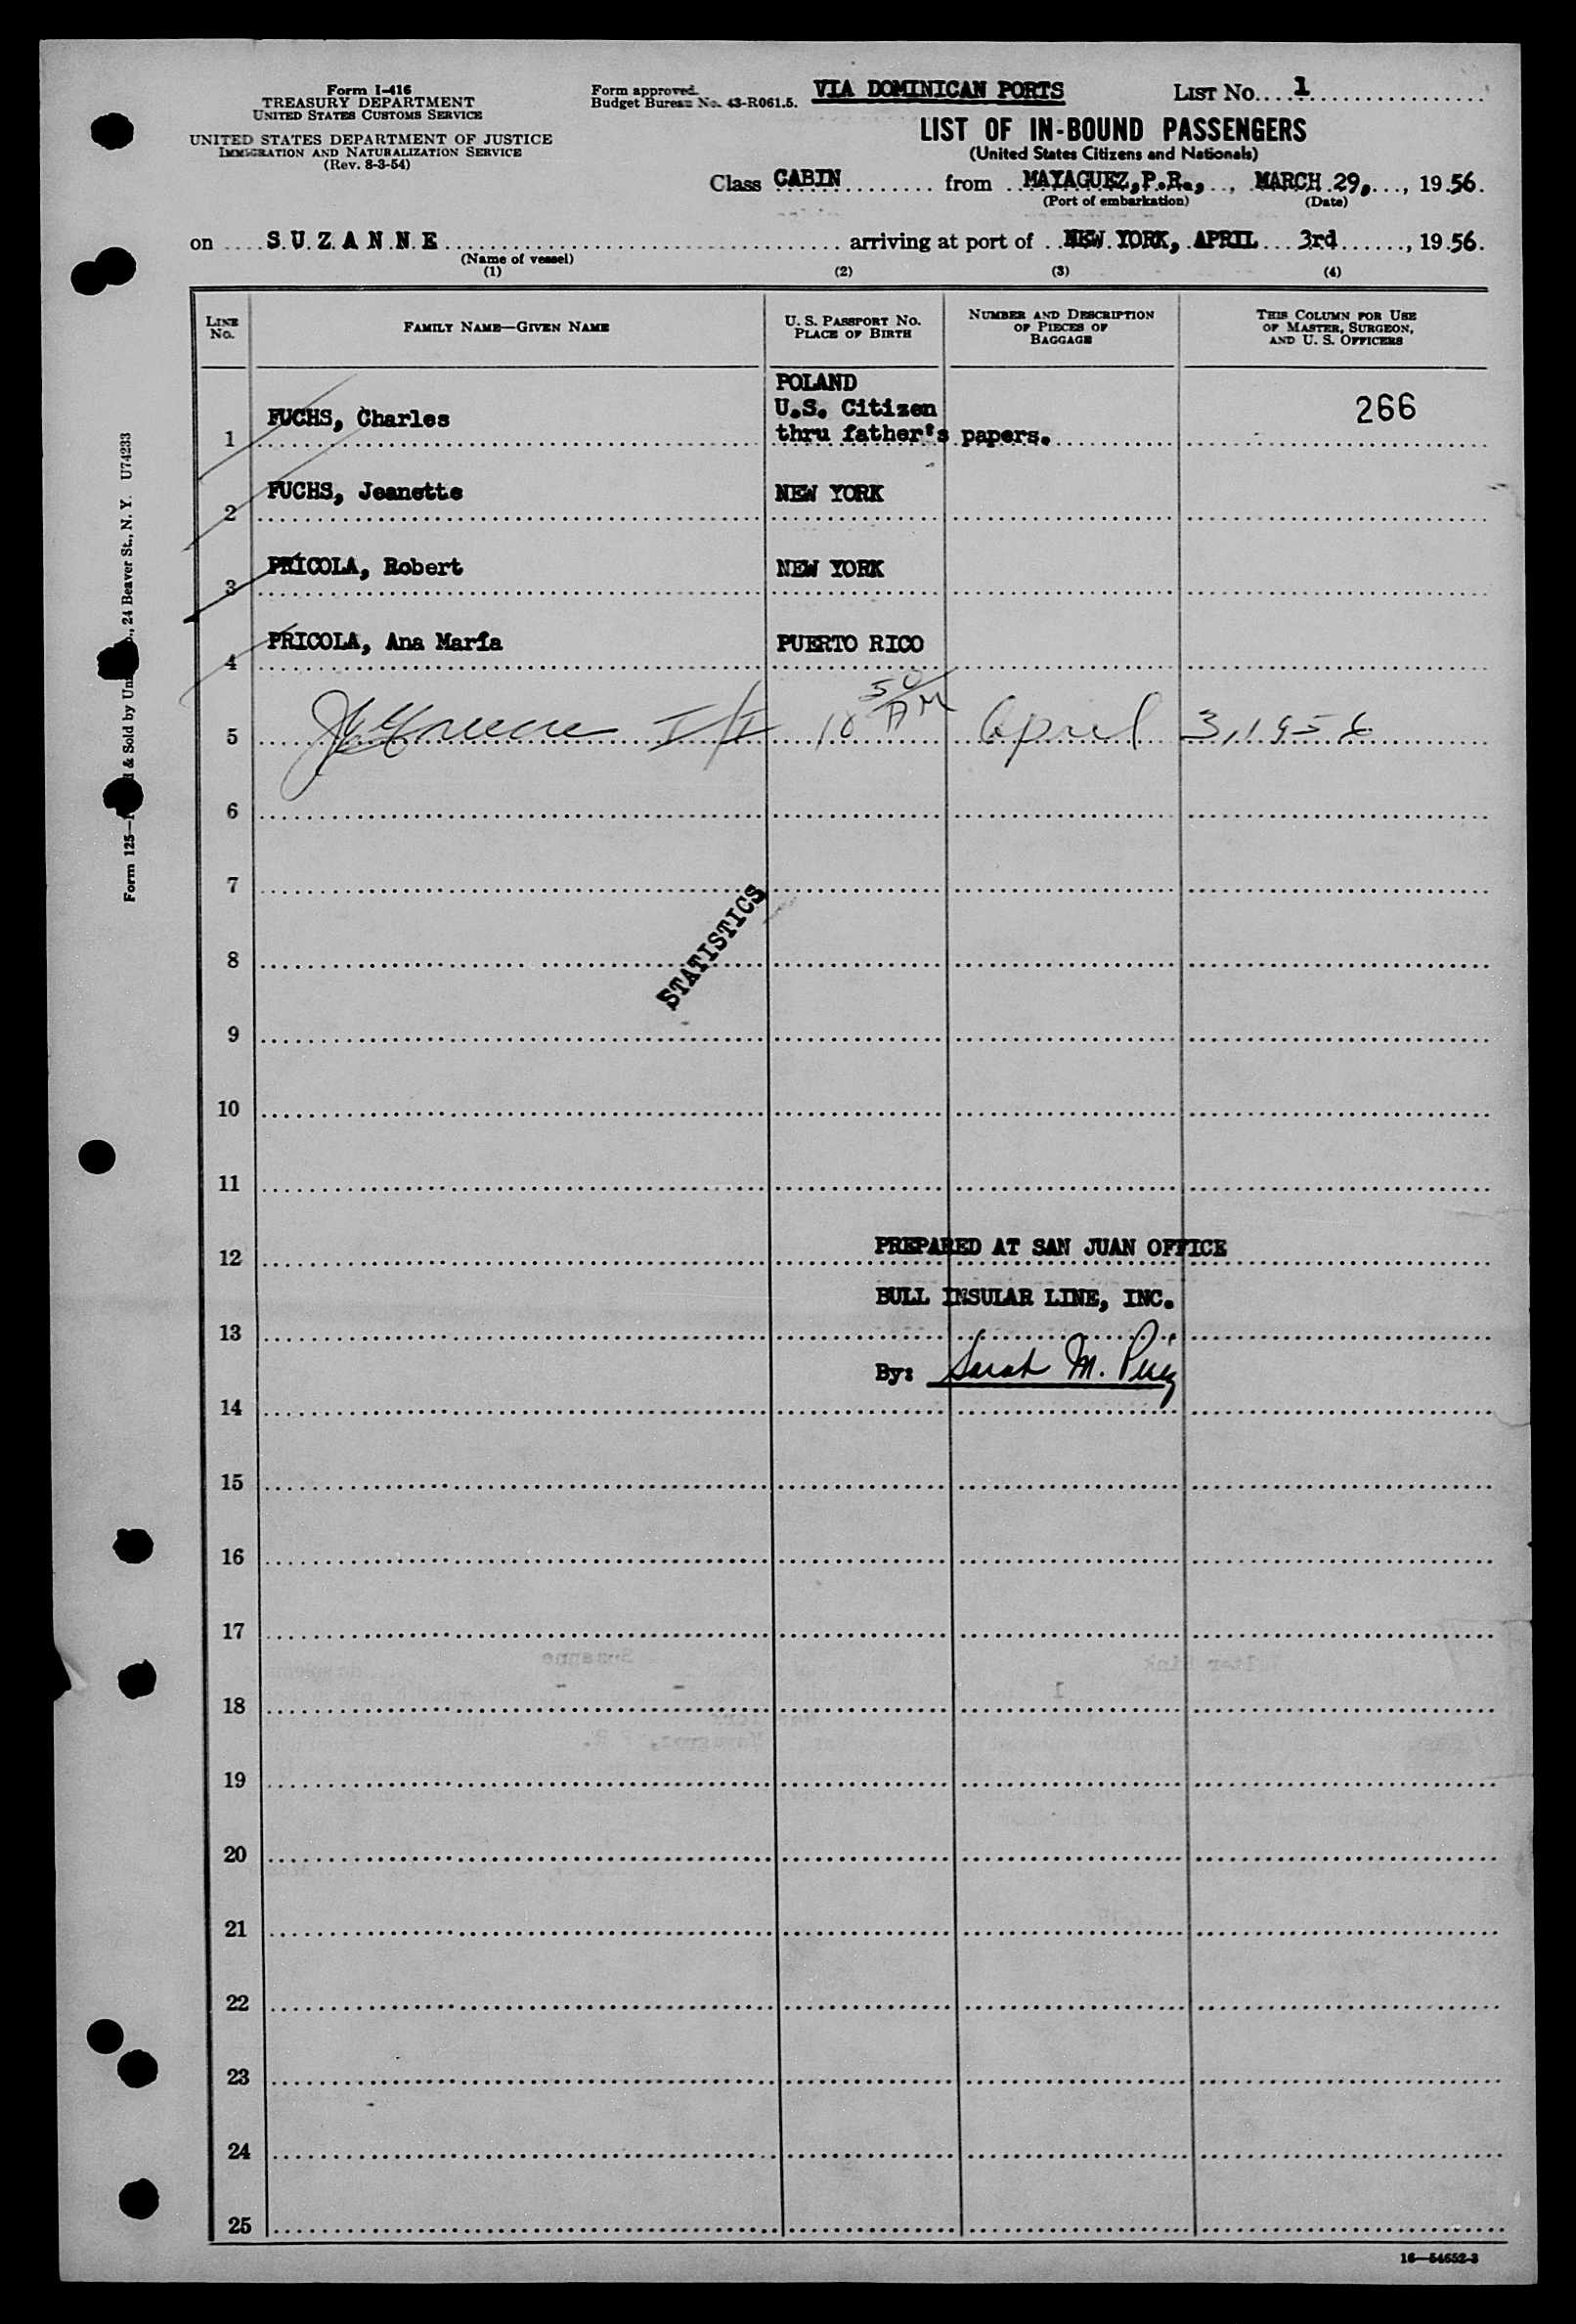 Form I-416
TREASURY DEPARTMENT
UNITED STATES CUSTOMS SERVICE
UNITED STATES DEPARTMENT OF JUSTICE
IMMIGRATION AND NATURALIZATION SERVICE
(Rev. 8-3-54)
Form approved.
Budget Bureau No. 43-R061.5.
VIA DOMINICAN PORTS
LIST NO. 1
LIST OF IN-BOUND PASSENGERS
(United States Citizens and Nationals)
Class CABIN from MAYAGUEZ, P.R., MARCH 29, 1956.
(Port of embarkation) (Date)
on S U Z A N N E arriving at port of NEW YORK, APRIL 3rd, 1956.
(Name of vessel)
(1) (2) (3) (4)
LINE NO.
FAMILY NAME—GIVEN NAME
U. S. PASSPORT NO.
PLACE OF BIRTH
NUMBER AND DESCRIPTION
OF PIECES OF
BAGGAGE
THIS COLUMN FOR USE
OF MASTER, SURGEON,
AND U. S. OFFICERS
1 FUCHS, Charles POLAND
U.S. Citizen
thru father's papers.
266
2 FUCHS, Jeanette NEW YORK
3 PRICOLA, Robert NEW YORK
4 PRICOLA, Ana María PUERTO RICO
5 10 50 AM April 3, 1956
6
7
8
STATISTICS
9
10
11
12 PREPARED AT SAN JUAN OFFICE
BULL INSULAR LINE, INC.
13
By: Sarah M.
14
15
16
17
18
19
20
21
22
23
24
25
16—54652-3
Form 125— & Sold by , 24 Beaver St., N. Y. U74233